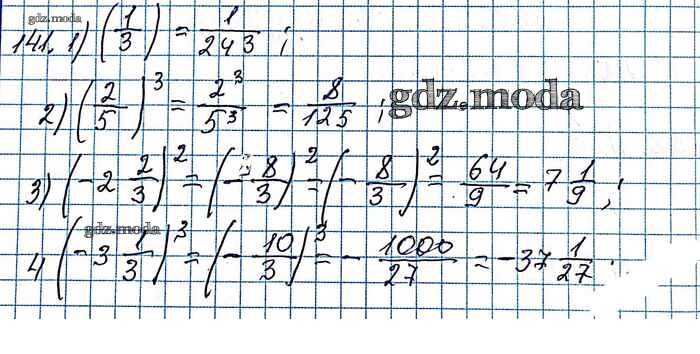 gdz.moda
141. 1) (1/3) = 1/243 ;
2) (2/5)^3 = 2^3/5^3 = 8/125 ; gdz.moda
3) (-2 2/3)^2 = (-8/3)^2 = (-8/3)^2 = 64/9 = 7 1/9 ;
gdz.moda
4 (-3 1/3)^3 = (-10/3)^3 = -1000/27 = -37 1/27 .